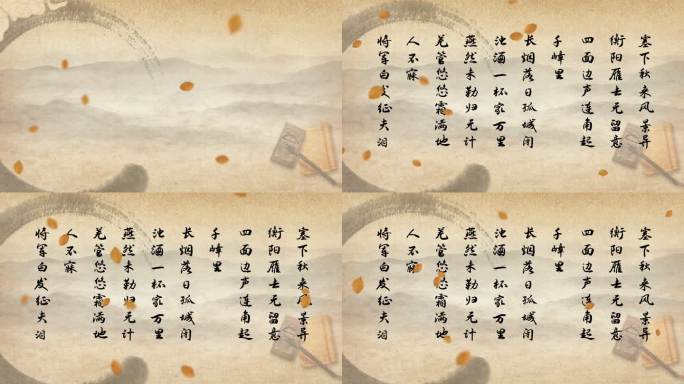 塞下秋来风景异
衡阳雁去无留意
四面边声连角起
千嶂里
长烟落日孤城闭
浊酒一杯家万里
燕然未勒归无计
羌管悠悠霜满地
人不寐
将军白发征夫泪
塞下秋来风景异
衡阳雁去无留意
四面边声连角起
千嶂里
长烟落日孤城闭
浊酒一杯家万里
燕然未勒归无计
羌管悠悠霜满地
人不寐
将军白发征夫泪
塞下秋来风景异
衡阳雁去无留意
四面边声连角起
千嶂里
长烟落日孤城闭
浊酒一杯家万里
燕然未勒归无计
羌管悠悠霜满地
人不寐
将军白发征夫泪